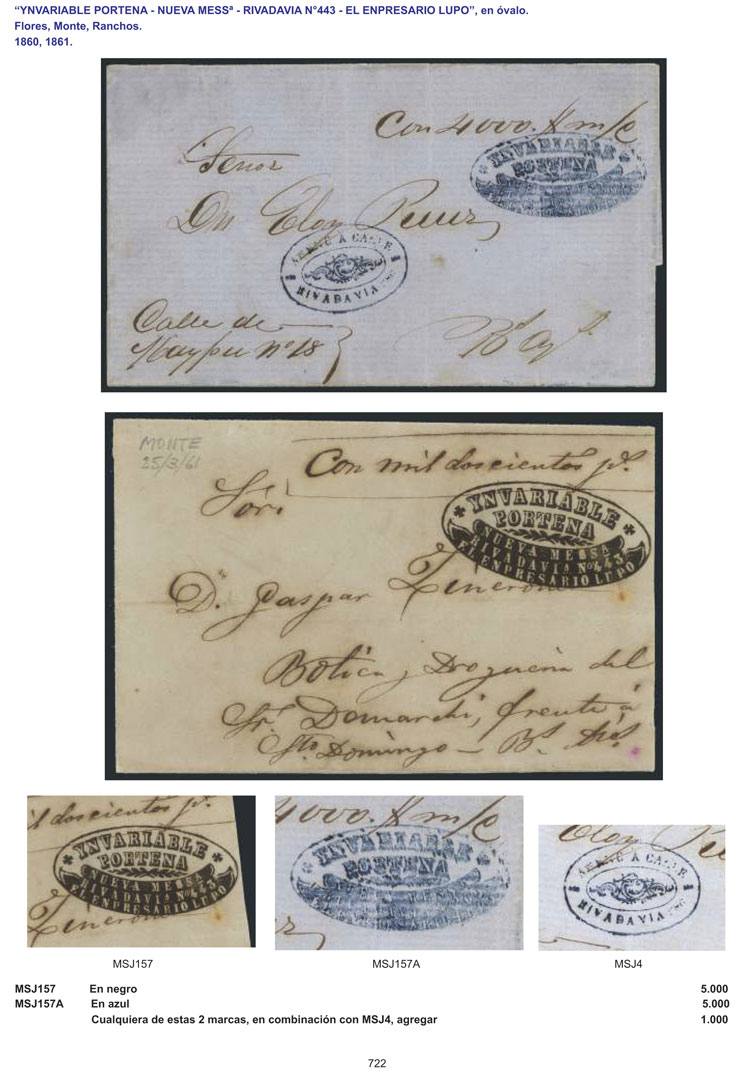 “YNVARIABLE PORTENA - NUEVA MESSª - RIVADAVIA N°443 - EL ENPRESARIO LUPO”, en óvalo.
Flores, Monte, Ranchos.
1860, 1861.
Con 4000. $ m/c
Señor
YNVARIABLE
PORTENA
Dn Eloy
A CALLE
RIVADAVIA
Calle de
Maypu nº 18
Bs Ays
MONTE
25/3/61
Con mil doscientos ps.
Sór.
YNVARIABLE
PORTENA
NUEVA MESSA
RIVADAVIA Nº 443
EL ENPRESARIO LUPO
D. Gaspar
Botica y Drogueria del
Sr. Demarchi, frente á
Sto. Domingo – Bs. Ais
il doscientos ps.
YNVARIABLE
PORTENA
NUEVA MESSA
RIVADAVIA Nº 443
EL ENPRESARIO LUPO
4000. $ m/c
YNVARIABLE
PORTENA
Eloy
A CALLE
RIVADAVIA
MSJ157
MSJ157A
MSJ4
MSJ157 En negro 5.000
MSJ157A En azul 5.000
Cualquiera de estas 2 marcas, en combinación con MSJ4, agregar 1.000
722